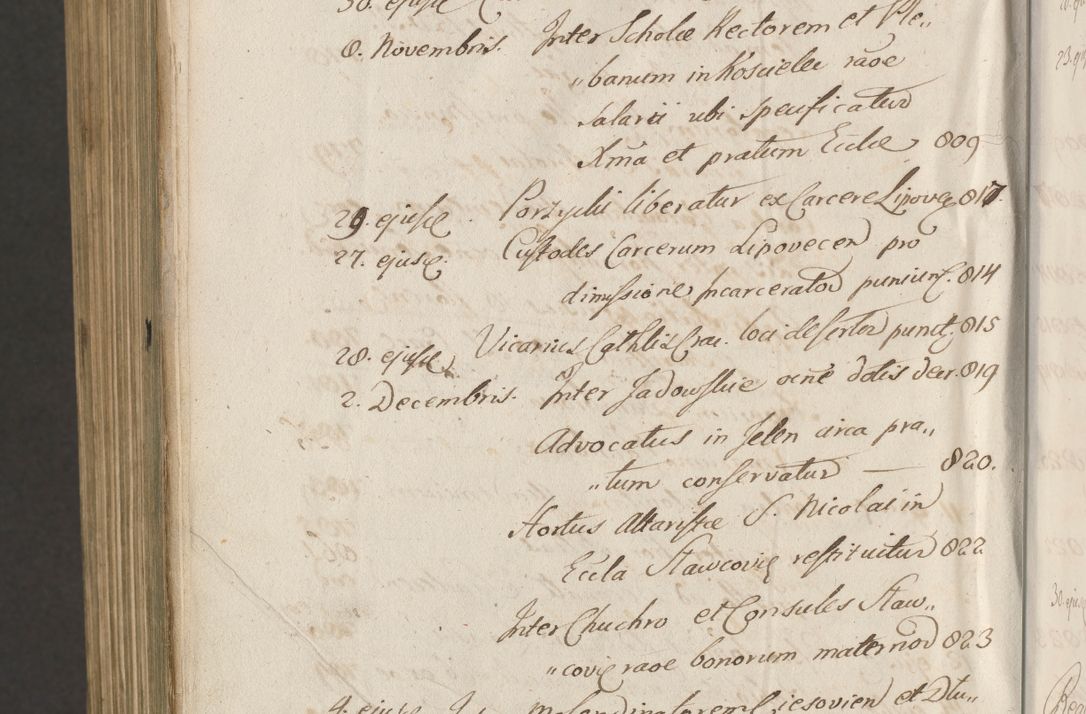 30. ejusde
8. Novembris. Inter Scholæ Rectorem et Ple„
„banum in Kościelec raõe
Salarii ubi specificatur
Xma et pratum Eccliæ 809
29. ejusde. Porzycki liberatur ex Carcere Lipovec. 817.
27. ejusde. Custodes Carcerum Lipovecen pro
dimissione Incarcerator puniunt. 814
28. ejusde Vicarius Cathlis Crac. loci desertor punct. 815
2. Decembris. Inter Jadowskie oĩne dotis decr. 819
Advocatus in Jelen circa pra„
„tum conservatur — 820.
Hortus Altaristæ S. Nicolai in
Eccla Slawcovie restituitur 822
Inter Chuchro et Consules Slaw„
„covie raõe bonorum maternor 823
4. ejusde et Dlu„